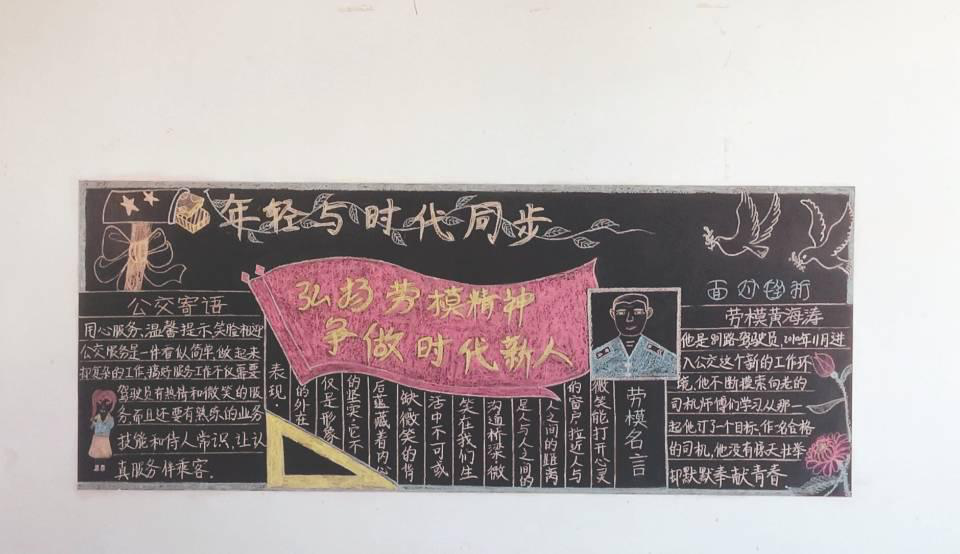 年轻与时代同步
弘扬劳模精神
争做时代新人
公交寄语
用心服务、温馨提示、笑脸相迎
公交服务是一件看似简单,做起来
却复杂的工作,搞好服务工作不仅需要
驾驶员有热情和微笑的服
务而且还要有熟乐的业务
技能和待人常识,让认
真服务伴乘客.
劳模名言
微笑能打开心灵
的窗户,拉近人与
人之间的距离
是人与人之间的
沟通桥梁,微
笑在我们生
活中不可或
缺,微笑的背
后蕴藏着内心
的坚实,它不
仅是形象
的外在
表现.
面对挫折
劳模黄海涛
他是 路驾驶员, 年11月进
入公交这个新的工作环
境,他不断摸索向老的
司机师傅们学习,从那一
起他订了一个目标,作名合格
的司机,他没有惊天壮举
却默默奉献青春